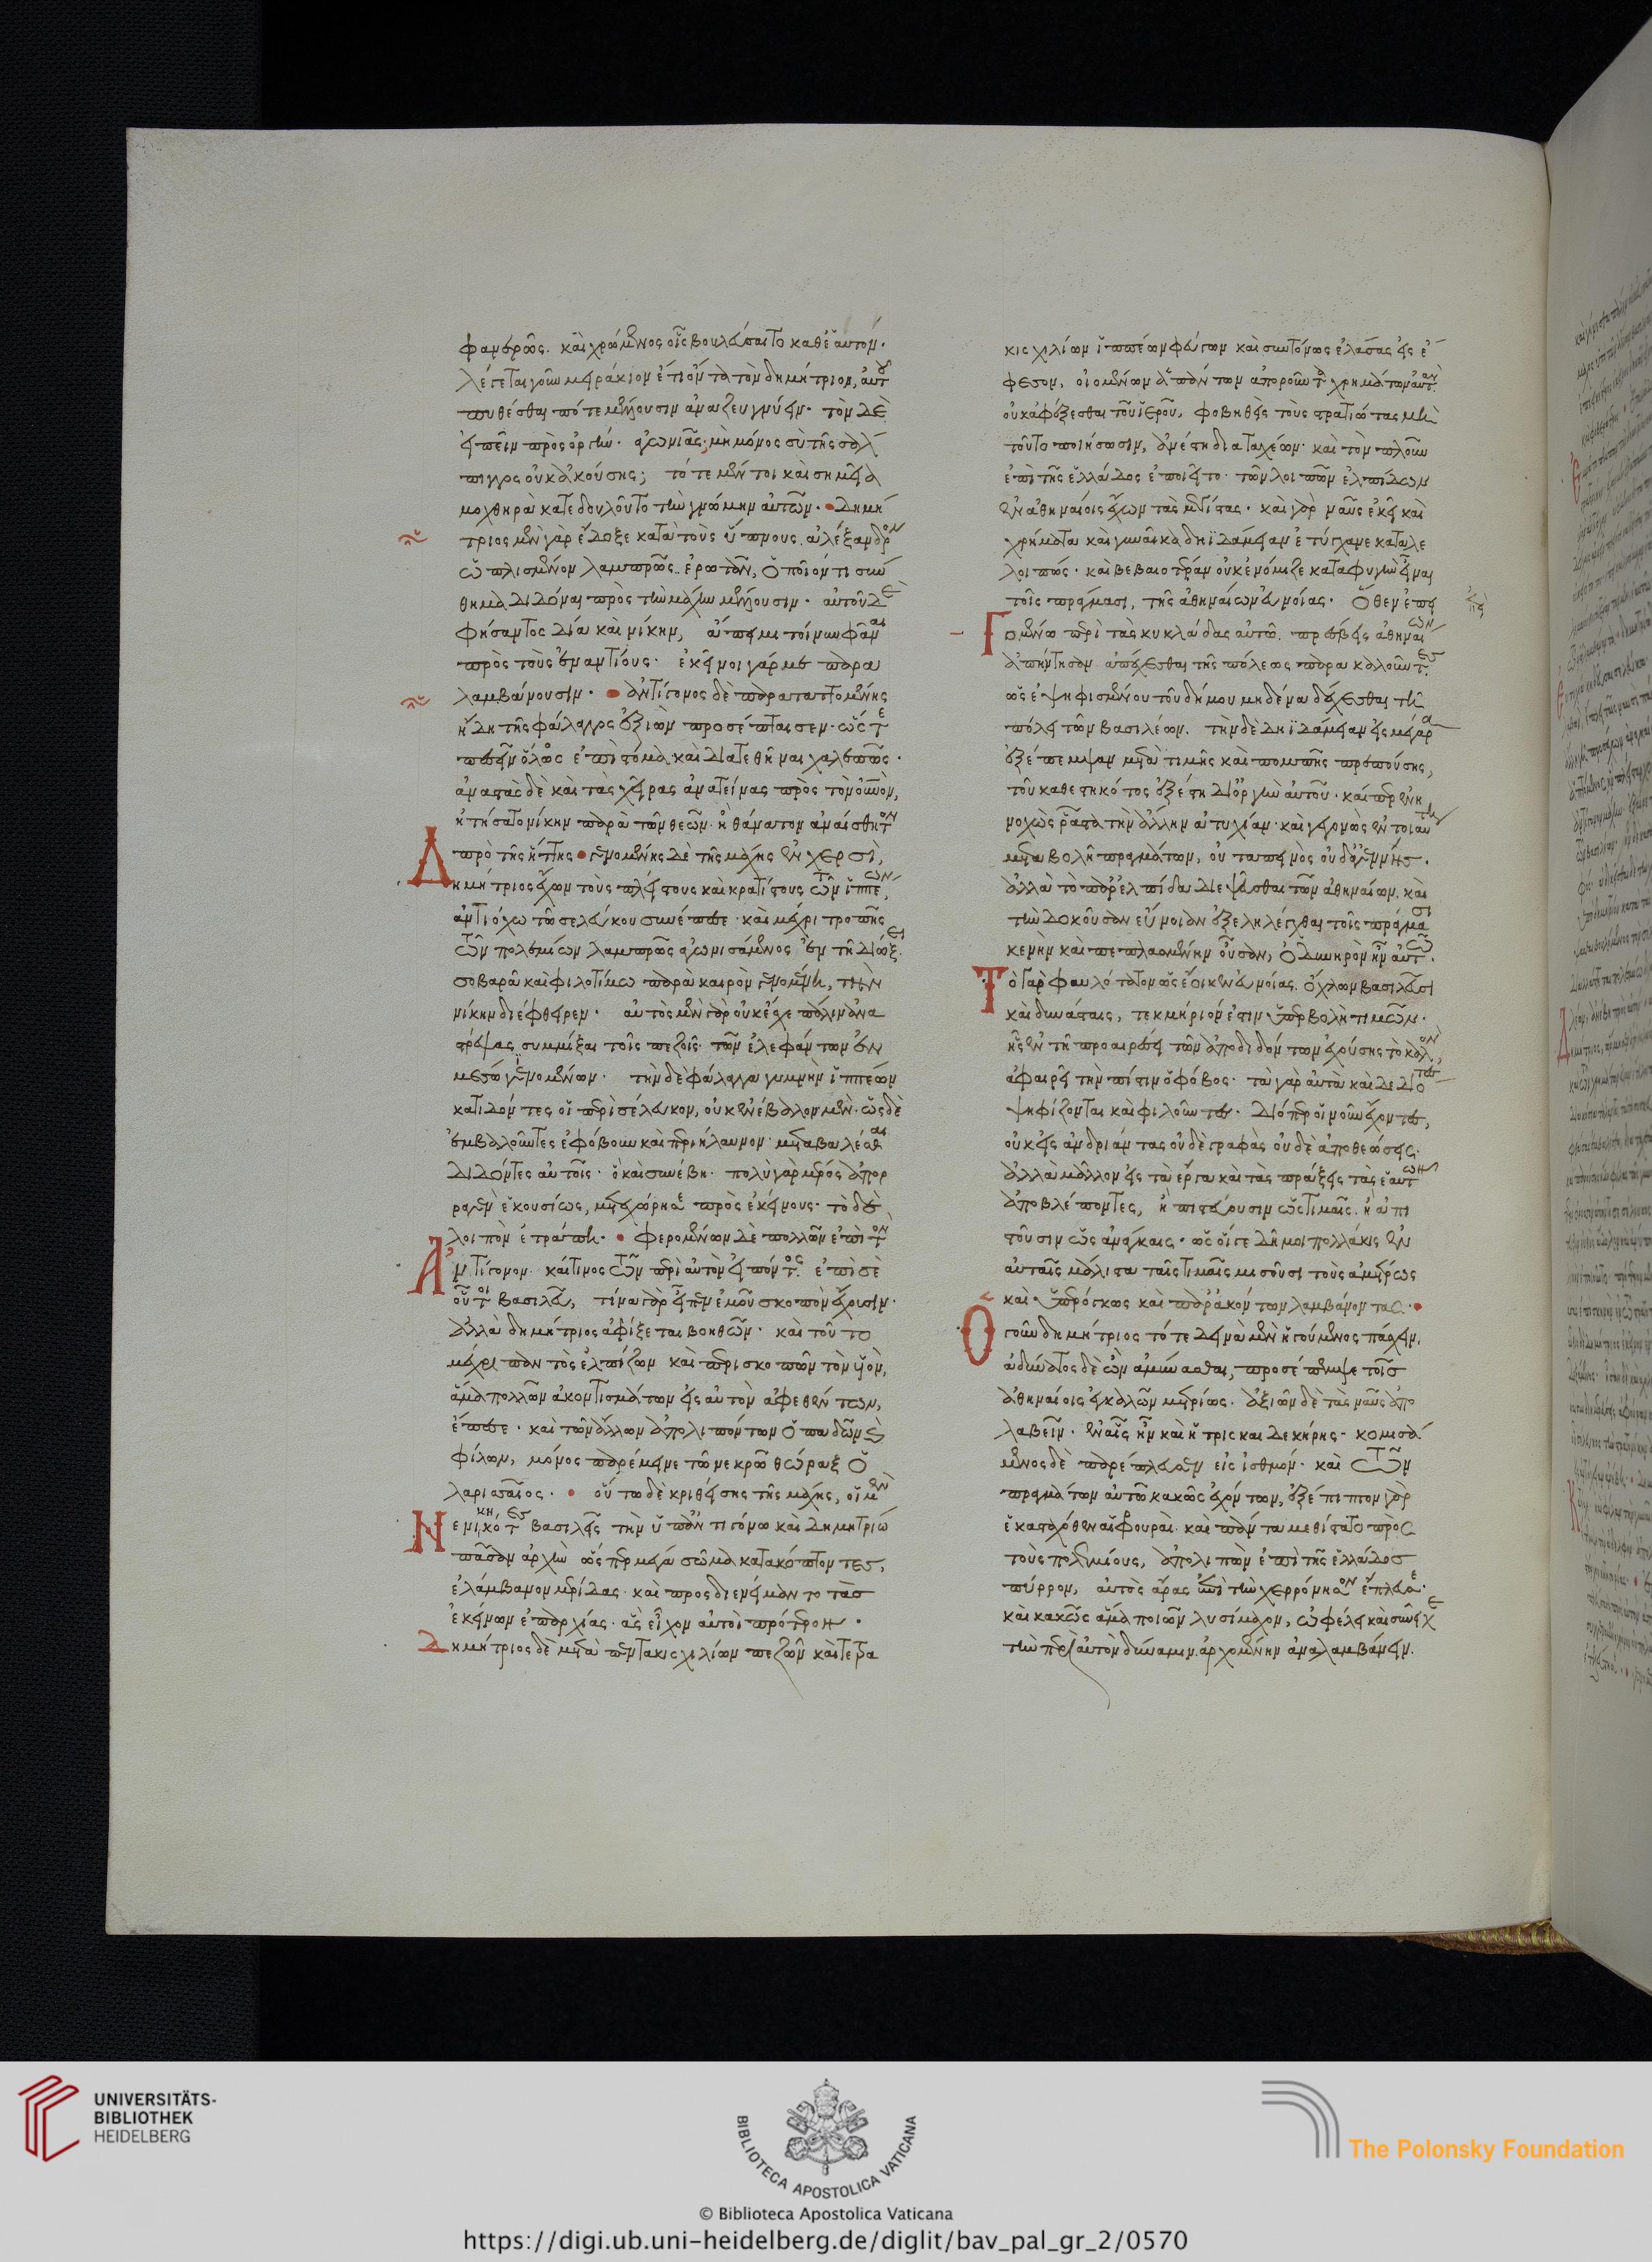 φανερῶς. καὶ χρώμενος οἷς βουλεύσαιτο καθ' ἑαυτόν.
λέγεται γοῦν μειράκιον ἔτι ὄντα τὸν δημήτριον, αὐτοῦ
πυθέσθαι πότε μέλλουσιν ἀναζευγνύειν. τὸν δὲ
εἰπεῖν πρὸς ὀργήν. ἀγωνιᾷς, μὴ μόνος σὺ τῆς σάλ
πιγγος οὐκ ἀκούσης; τότε μέντοι καὶ σημεῖα
μοχθηρὰ κατεδουλοῦτο τὴν γνώμην αὐτῶν. δημή
τριος μὲν γὰρ ἔδοξε κατὰ τοὺς ὕπνους ἀλέξανδρον
ὡπλισμένον λαμπρῶς ἐρωτᾶν, ὁποῖόν τι σύν
θημα διδόναι πρὸς τὴν μάχην μέλλουσιν. αὐτοῦ δὲ
φήσαντος δία καὶ νίκην, ἄπειμι τοίνυν φάναι
πρὸς τοὺς ἐναντίους. ἐκεῖνοι γάρ με παρα
λαμβάνουσιν. ἀντίγονος δὲ παραταττομένης
ἤδη τῆς φάλαγγος ἐξιὼν προσέπταισεν. ὥστε
πεσεῖν ὅλος ἐπὶ στόμα καὶ διατεθῆναι χαλεπῶς.
ἀναστὰς δὲ καὶ τὰς χεῖρας ἀνατείνας πρὸς τὸν οὐρανόν,
ἠτήσατο νίκην παρὰ τῶν θεῶν. ἢ θάνατον ἀναίσθητον
πρὸ τῆς ἥττης. γενομένης δὲ τῆς μάχης ἐν χερσὶ,
Δημήτριος ἔχων τοὺς πλείστους καὶ κρατίστους τῶν ἱππέων,
ἀντιόχω τῶ σελεύκου συνέπεσε. καὶ μέχρι τροπῆς
τῶν πολεμίων λαμπρῶς ἀγωνισάμενος ἐν τῆ διώξει
σοβαρᾶ καὶ φιλοτίμω παρὰ καιρὸν γενομένη, τὴν
νίκην διέφθειρεν. αὐτὸς μὲν γὰρ οὐκ ἔσχε πάλιν ἀνα
στρέψας συμμίξαι τοῖς πεζοῖς τῶν ἐλεφάντων ἐν
μέσω γενομένων. τὴν δὲ φάλαγγα γυμνὴν ἱππέων
κατιδόντες οἱ περὶ σέλευκον, οὐκ ἐνέβαλον μὲν. ὡς δὲ
ἐμβαλοῦντες ἐφόβουν καὶ περιήλαυνον μεταβαλέσθαι
διδόντες αὐτοῖς. ὃ καὶ συνέβη. πολὺ γὰρ μέρος ἀπορ
ραγὲν ἑκουσίως, μετεχώρησε πρὸς ἐκείνους. τὸ δὲ
λοιπὸν ἐτράπη. φερομένων δὲ πολλῶν ἐπὶ τὸν
Ἀντίγονον. καί τινος τῶν περὶ αὐτὸν εἰπόντος. ἐπὶ σὲ
οὗτοι βασιλεῦ, τίνα γὰρ εἶπεν ἐμοῦ σκοπὸν ἔχουσιν.
ἀλλὰ δημήτριος ἀφίξεται βοηθῶν. καὶ τοῦτο
μέχρι παντὸς ἐλπίζων καὶ περισκοπῶν τὸν υἱὸν,
ἅμα πολλῶν ἀκοντισμάτων εἰς αὐτὸν ἀφεθέντων,
ἔπεσε. καὶ τῶν ἄλλων ἀπολιπόντων ὀπαδῶν καὶ
φίλων, μόνος παρέμεινε τῶ νεκρῶ θώραξ ὁ
λαρισσαῖος. οὕτω δὲ κριθείσης τῆς μάχης, οἱ μὲν
Νενικηκότες βασιλεῖς τὴν ὑπ' ἀντιγόνω καὶ δημητρίω
πᾶσαν ἀρχὴν ὥσπερ μέγα σῶμα κατακόπτοντες,
ἐλάμβανον μερίδας. καὶ προσδιενείμαντο τὰς
ἐκείνων ἐπαρχίας. ἃς εἶχον αὐτοὶ πρότερον.
Δημήτριος δὲ μετὰ πεντακισχιλίων πεζῶν καὶ τετρα
κισχιλίων ἱππέων φεύγων καὶ συντόνως ἐλάσας εἰς ἔ
φεσον, οἰομένων ἁπάντων ἀποροῦντα χρημάτων αὐτὸν
οὐκ ἀφέξεσθαι τοῦ ἱεροῦ, φοβηθεὶς τοὺς στρατιώτας μὴ
τοῦτο ποιήσωσιν, ἀνέστη διὰ ταχέων. καὶ τὸν πλοῦν
ἐπὶ τῆς ἑλλάδος ἐποιεῖτο. τῶν λοιπῶν ἐλπίδων
ἐν ἀθηναίοις ἔχων τὰς μεγίστας. καὶ γὰρ ναῦς ἐκεῖ καὶ
χρήματα καὶ γυναῖκα δηϊδάμειαν ἐτύγχανε καταλε
λοιπώς. καὶ βεβαιοτέραν οὐκ ἐνόμιζε καταφυγὴν εἶναι
τοῖς πράγμασι, τῆς ἀθηναίων εὐνοίας. ὅθεν ἐπεὶ
Γενομένω περὶ τὰς κυκλάδας αὐτῶ. πρέσβεις ἀθηναίων
ἀπήντησαν ἀπέχεσθαι τῆς πόλεως παρακαλοῦντες
ὡς ἐψηφισμένου τοῦ δήμου μηδένα δέχεσθαι τῆ
πόλει τῶν βασιλέων. τὴν δὲ δηϊδάμειαν εἰς μέγαρα
ἐξέπεμψαν μετὰ τιμῆς καὶ πομπῆς πρεπούσης,
τοῦ καθεστηκότος ἐξέστη δι' ὀργὴν αὑτοῦ. καίπερ ἐνη
νοχὼς ῥᾶστα τὴν ἄλλην ἀτυχίαν. καὶ γεγονὼς ἐν τοιαύτη
μεταβολῆ πραγμάτων, οὐ ταπεινὸς οὐδ' ἀγεννής.
ἀλλὰ τὸ παρ' ἐλπίδα διεψεῦσθαι τῶν ἀθηναίων. καὶ
τὴν δοκοῦσαν εὔνοιαν ἐξεληλέγχθαι τοῖς πράγμασι
κενὴν καὶ πεπλασμένην οὖσαν, ὀδυνηρὸν ἦν αὐτῶ.
Τὸ γὰρ φαυλότατον ὡς ἔοικεν εὐνοίας ὄχλων βασιλεῦσι
καὶ δυνάσταις, τεκμήριόν ἐστιν ὑπερβολὴ τιμῶν.
ἧς ἐν τῆ προαιρέσει τῶν ἀποδιδόντων ἐχούσης τὸ καλόν,
ἀφαιρεῖ τὴν πίστιν ὁ φόβος. τὰ γὰρ αὐτὰ καὶ δεδιότες
ψηφίζονται καὶ φιλοῦντες. διόπερ οἱ νοῦν ἔχοντες,
οὐκ εἰς ἀνδριάντας οὐδὲ γραφὰς οὐδὲ ἀποθεώσεις.
ἀλλὰ μᾶλλον εἰς τὰ ἔργα καὶ τὰς πράξεις τὰς ἑαυτῶν
ἀποβλέποντες, ἢ πιστεύουσιν ὡς τιμαῖς. ἢ ἀπι
στοῦσιν ὡς ἀνάγκαις. ὡς οἵγε δῆμοι πολλάκις ἐν
αὐταῖς μάλιστα ταῖς τιμαῖς μισοῦσι τοὺς ἀμέτρως
καὶ ὑπερόγκως καὶ παρ' ἀκόντων λαμβάνοντας.
Ὁ γοῦν δημήτριος τότε δεινὰ μὲν ἡγούμενος πάσχειν,
ἀδύνατος δὲ ὢν ἀμύνασθαι, προσέπεμψε τοῖς
ἀθηναίοις ἐγκαλῶν μετρίως. ἀξιῶν δὲ τὰς ναῦς ἀπο
λαβεῖν. ἐν αἷς ἦν καὶ ἡ τρισκαιδεκήρης. κομισά
μενος δὲ παρέπλευσεν εἰς ἰσθμόν. καὶ τῶν
πραγμάτων αὐτῶ κακῶς ἐχόντων, ἐξέπιπτον γὰρ
ἑκασταχόθεν αἱ φρουραὶ. καὶ πάντα μεθίστατο πρὸς
τοὺς πολεμίους, ἀπολιπὼν ἐπὶ τῆς ἑλλάδος
πύρρον, αὐτὸς ἄρας ἐπὶ τὴν χερρόνησον ἔπλευσε.
καὶ κακῶς ἅμα ποιῶν λυσίμαχον, ὠφέλει καὶ συνεῖχε
τὴν περὶ αὑτὸν δύναμιν ἀρχομένην ἀναλαμβάνειν.
UNIVERSITÄTS-
BIBLIOTHEK
HEIDELBERG
BIBLIOTECA APOSTOLICA VATICANA
© Biblioteca Apostolica Vaticana
The Polonsky Foundation
https://digi.ub.uni-heidelberg.de/diglit/bav_pal_gr_2/0570